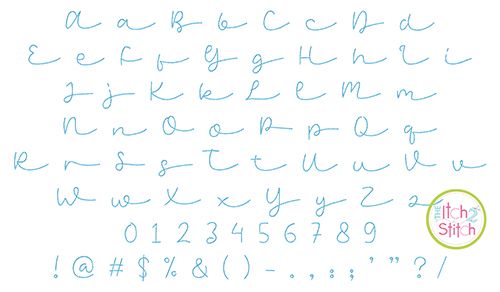 A a B b C c D d
E e F f G g H h I i
J j K k L l M m
N n O o P p Q q
R r S s T t U u V v
W w X x Y y Z z
0 1 2 3 4 5 6 7 8 9
! @ # $ % & ( ) - . , : ; ' " ? /
THE Itch 2 Stitch